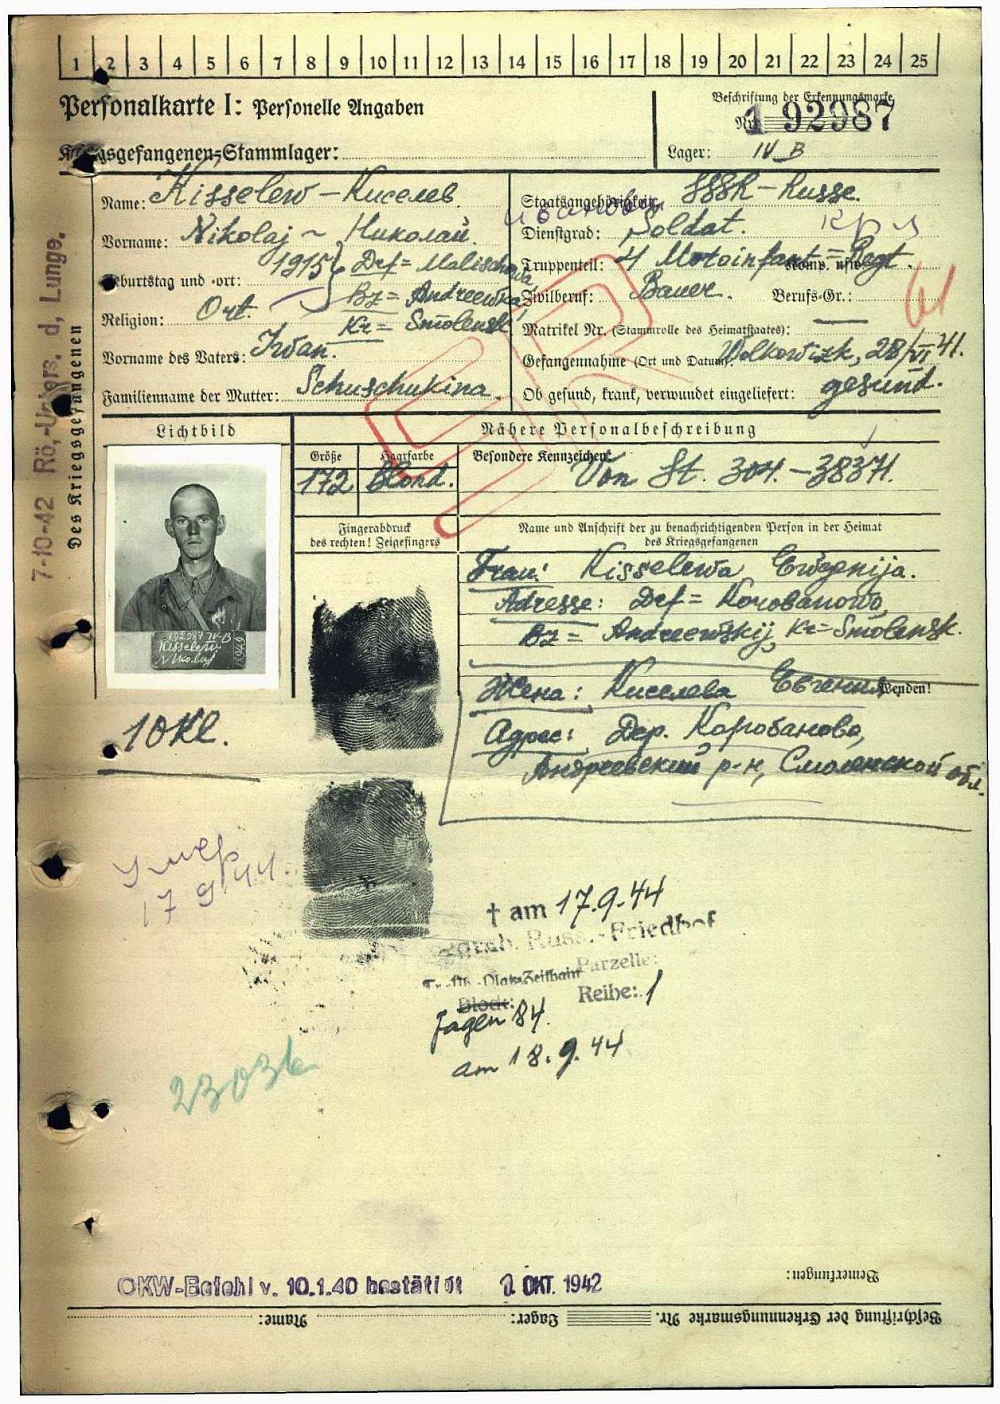 1 2 3 4 5 6 7 8 9 10 11 12 13 14 15 16 17 18 19 20 21 22 23 24 25
Personalkarte I: Personelle Angaben
Beschriftung der Erkennungsmarke
Nr. 192987
Kriegsgefangenen-Stammlager:
Lager: IV B
Des Kriegsgefangenen
7-10-42 Rö.-Unters. d. Lunge.
Name: Kisselew – Киселев.
Vorname: Nikolaj ~ Николай.
Geburtstag und -ort: 1915
Bz = Andreewka,
Kr = Smolensk
Religion: Ort.
Vorname des Vaters: Iwan.
Familienname der Mutter: Schuschukina.
Staatsangehörigkeit: SSSR – Russe.
Иванович
Dienstgrad: Soldat.
Крл
Truppenteil: 4 Motoinfant = Regt. Komp. usw.
Zivilberuf: Bauer. Berufs-Gr.:
Matrikel Nr. (Stammrolle des Heimatstaates): —
Gefangennahme (Ort und Datum): Wolkowizk, 28/VI 41.
Ob gesund, krank, verwundet eingeliefert: gesund.
Lichtbild
Nähere Personalbeschreibung
Größe
172
Haarfarbe
Blond.
Besondere Kennzeichen:
Von St. 304. – 38371.
Fingerabdruck
des rechten! Zeigefingers
Name und Anschrift der zu benachrichtigenden Person in der Heimat
des Kriegsgefangenen
Frau: Kisselewa Ewgenija.
Adresse: Drf = Korobanowo,
Bz = Andreewskij, Kr = Smolensk.
Wenden!
Жена: Киселева Евгения
Адрес: Дер. Коробаново,
Андреевский р-н, Смоленской обл.
192987 IV-B
Kisselew
Nikolaj
10Kl.
Умер
17 9 44.
† am 17.9.44
Russ.-Friedhof
Tr. Üb. Platz Zeithain
Parzelle:
Block:
Reihe: 1
Jagen 84.
am 18.9.44
23036
OKW-Befehl v. 10.1.40 bestätigt
OKT. 1942
Bemerkungen:
Beschriftung der Erkennungsmarke Nr.
Lager:
Name: